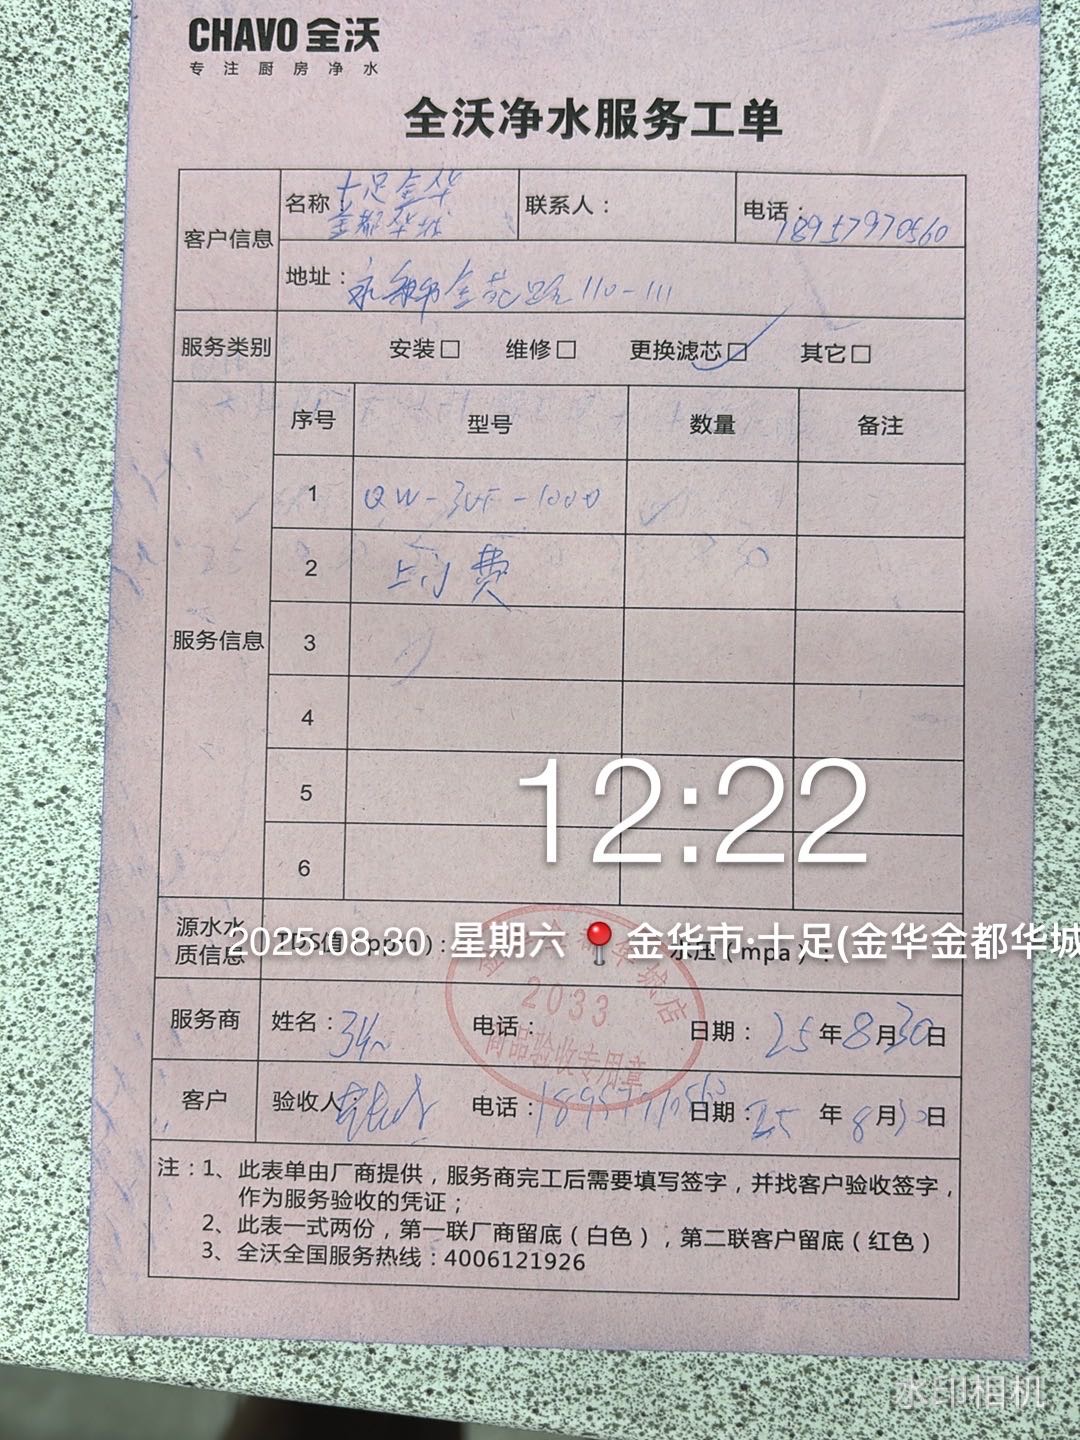 CHAVO 全沃
专注厨房净水
全沃净水服务工单
客户信息 名称：十足金华金都华城 联系人： 电话：18957970560
地址： 金苑路110-111
服务类别 安装□ 维修□ 更换滤芯☑ 其它□
服务信息 序号 型号 数量 备注
1 QW-3UF-1000
2 上门费
3
4
5
6
12:22
源水水质信息 TDS值（ppm）： 水压（mpa）：
2025.08.30 星期六 金华市·十足(金华金都华城
华城店
2033
商品验收专用章
服务商 姓名： 电话： 日期：25年8月30日
客户 验收人： 电话：18957970560 日期：25年8月30日
注：1、此表单由厂商提供，服务商完工后需要填写签字，并找客户验收签字，
作为服务验收的凭证；
2、此表一式两份，第一联厂商留底（白色），第二联客户留底（红色）
3、全沃全国服务热线：4006121926
水印相机